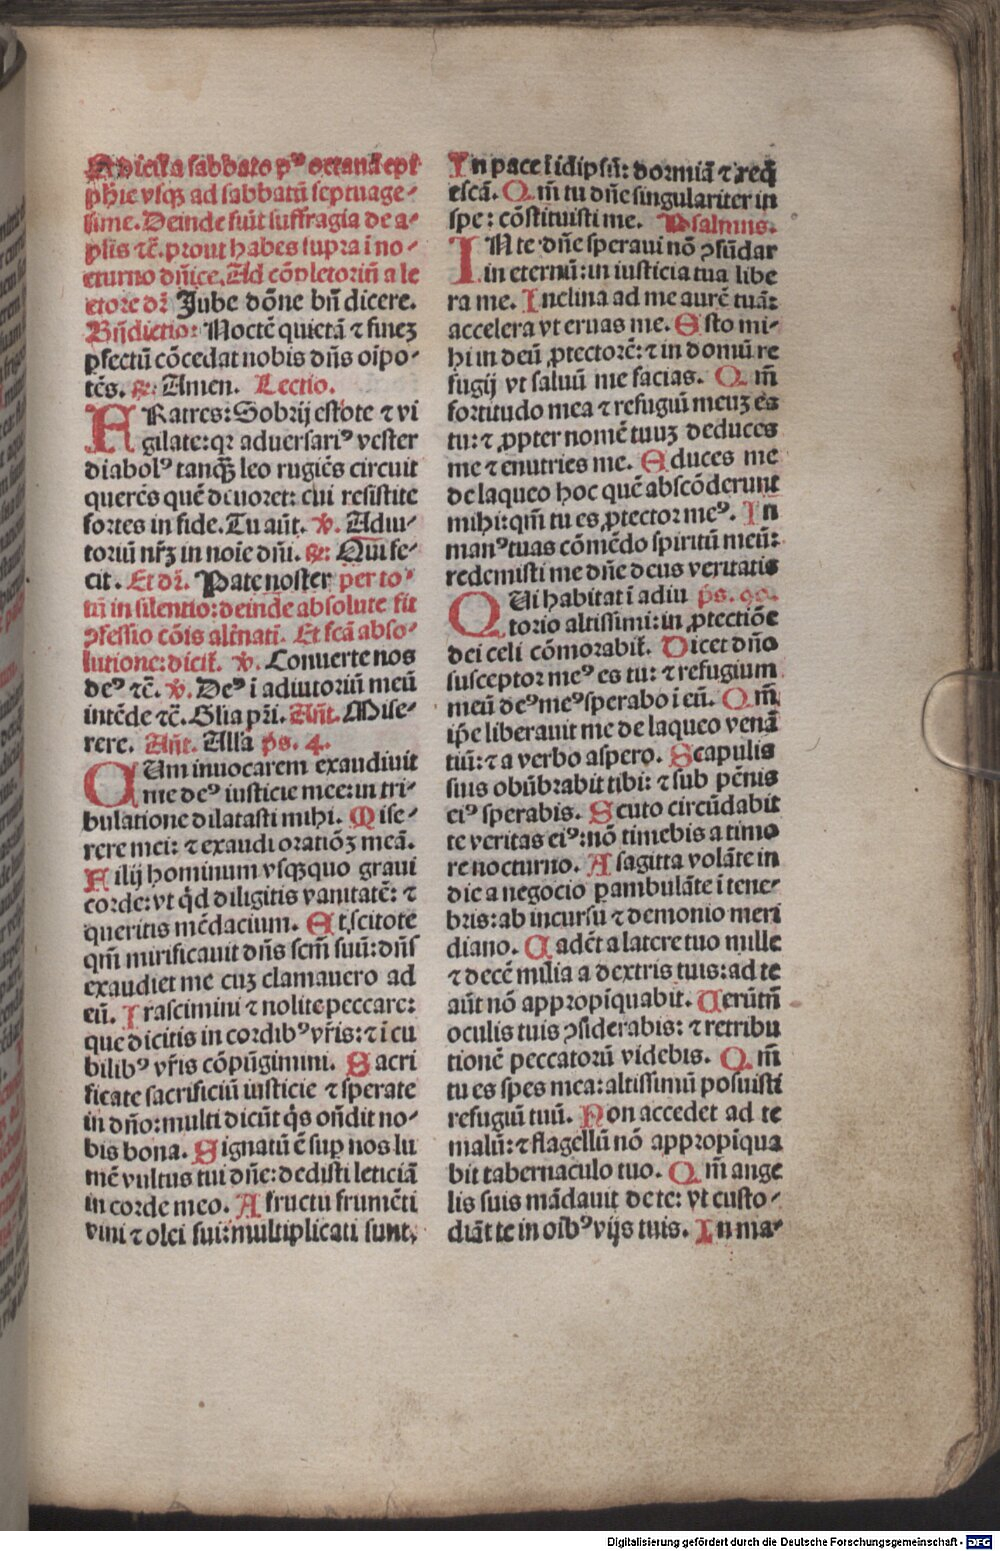 dicit̃ a sabbato pꝰ octauã epi
phie vsqꝫ ad sabbatũ septuage⸗
sime. Deinde fiũt suffragia de a⸗
plis ⁊c̃. prout habes supra ĩ no⸗
cturno dñice. Ad cõpletoriũ a le
ctore dr̃ Jube dõne bñ dicere.
Bñdictio: Noctẽ quietã ⁊ finez
ꝑfectũ cõcedat nobis dñs oĩpo⸗
tẽs. ℞. Amen. Lectio.
FRatres: Sobrij estote ⁊ vi
gilate: qꝛ aduersariꝰ vester
diabolꝰ tanqꝫ leo rugiẽs circuit
querẽs quẽ deuoret: cui resistite
fortes in fide. Tu aũt. ℣. Adiu⸗
toriũ nr̃ꝫ in noĩe dñi. ℞: Qui fe⸗
cit. Et dr̃. Pate noster per to⸗
tũ in silentio: deinde absolute fit
ꝯfessio cõis alt̃nati. Et fcã abso⸗
lutione: dicit̃. ℣. Conuerte nos
deꝰ ⁊c̃. ℣. Deꝰ ĩ adiutoriũ meũ
intẽde ⁊c̃. Glia pr̃i. Añt. Mise⸗
rere. Añt. Alla p̃s. 4.
CUm inuocarem exaudiuit
me deꝰ iusticie mee: in tri⸗
bulatione dilatasti mihi. Mise⸗
rere mei: ⁊ exaudi oratiõꝫ meã.
Filij hominum vsqꝫquo graui
corde: vt qͥd diligitis vanitatẽ: ⁊
queritis mẽdacium. Et scitote
qm̃ mirificauit dñs scm̃ suũ: dñs
exaudiet me cuꝫ clamauero ad
eũ. Irascimini ⁊ nolite peccare:
que dicitis in cordibꝰ vr̃is: ⁊ ĩ cu
bilibꝰ vr̃is cõpũgimini. Sacri
ficate sacrificiũ iusticie ⁊ sperate
in dño: multi dicũt qͥs oñdit no⸗
bis bona. Signatũ ẽ suꝑ nos lu
mẽ vultus tui dñe: dedisti leticiã
in corde meo. A fructu frumẽti
vini ⁊ olei sui: multiplicati sunt.
In pace ĩ idipsũ: dormiã ⁊ reqͥ
escã. Qm̃ tu dñe singulariter in
spe: cõstituisti me. Psalmus.
IN te dñe speraui nõ ꝯfũdar
in eternũ: in iusticia tua libe
ra me. Inclina ad me aurẽ tuã:
accelera vt eruas me. Esto mi⸗
hi in deũ ꝓtectorẽ: ⁊ in domũ re
fugij vt saluũ me facias. Qm̃
fortitudo mea ⁊ refugiũ meuꝫ es
tu: ⁊ ꝓpter nomẽ tuuꝫ deduces
me ⁊ enutries me. Educes me
de laqueo hoc quẽ abscõderunt
mihi: qm̃ tu es ꝓtector meꝰ. In
manꝰ tuas cõmẽdo spiritũ meũ:
redemisti me dñe deus veritatis
QUi habitat ĩ adiu p̃s. 90.
torio altissimi: in ꝓtectiõe
dei celi cõmorabit̃. Dicet dño
susceptor meꝰ es tu: ⁊ refugium
meũ deꝰ meꝰ sperabo ĩ eũ. Qm̃
ip̃e liberauit me de laqueo venã
tiũ: ⁊ a verbo aspero. Scapulis
suis obũbrabit tibi: ⁊ sub pẽnis
eiꝰ sperabis. Scuto circũdabit
te veritas eiꝰ: nõ timebis a timo
re nocturno. A sagitta volãte in
die a negocio ꝑambulãte ĩ tene⸗
bris: ab incursu ⁊ demonio meri
diano. Cadẽt a latere tuo mille
⁊ decẽ milia a dextris tuis: ad te
aũt nõ appropĩquabit. Uerũtñ
oculis tuis ꝯsiderabis: ⁊ retribu
tionẽ peccatorũ videbis. Qm̃
tu es spes mea: altissimũ posuisti
refugiũ tuũ. Non accedet ad te
malũ: ⁊ flagellũ nõ appropĩqua
bit tabernaculo tuo. Qm̃ ange
lis suis mãdauit de te: vt custo⸗
diãt te in oĩbꝰ vijs tuis. In ma⸗
Digitalisierung gefördert durch die Deutsche Forschungsgemeinschaft - DFG